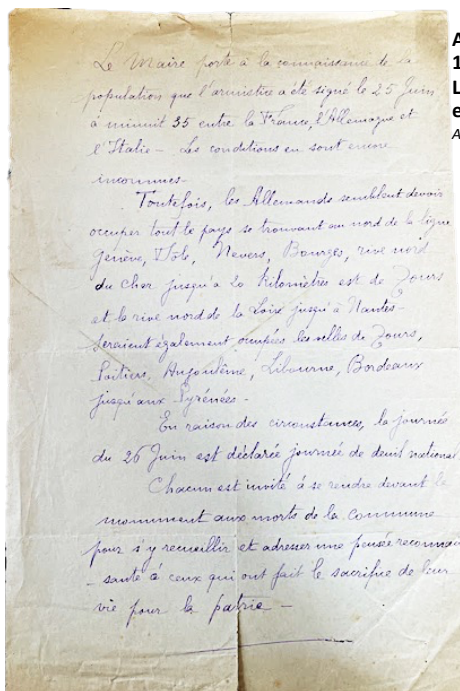 Le Maire porte à la connaissance de la
population que l'armistice a été signé le 25 Juin
à minuit 35 entre la France, l'Allemagne et
l'Italie - Les conditions en sont encore
inconnues -
Toutefois, les Allemands semblent devoir
occuper tout le pays se trouvant au nord de la ligne
Genève, Dole, Nevers, Bourges, rive nord
du Cher jusqu'à 20 kilomètres est de Tours
et la rive nord de la Loire jusqu'à Nantes -
Seraient également occupées les villes de Tours,
Poitiers, Angoulême, Libourne, Bordeaux
jusqu'aux Pyrénées -
En raison des circonstances, la journée
du 26 Juin est déclarée journée de deuil national
Chacun est invité à se rendre devant le
monument aux morts de la commune
pour s'y recueillir et adresser une pensée reconnais
- sante à ceux qui ont fait le sacrifice de leur
vie pour la patrie -
A
1
L
e
A